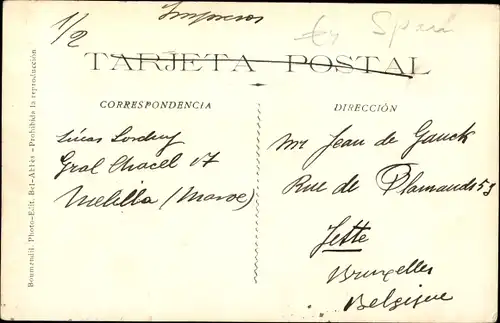 1/2
Impresos
TARJETA POSTAL
CORRESPONDENCIA
Gral Chacel 17
Melilla (Maroc)
DIRECCIÓN
Mr Jean de Gauck
Rue de Flamands 53
Jette
Bruxelles
Belgique
Boumendil. Photo-Edit. Bel-Abbès - Prohibida la reproducción